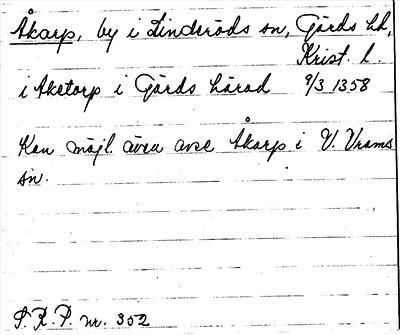 Åkarp, by i Linderöds sn, Gärds hd,
Krist. l.
i Aketorp i Gärds härad 9/3 1358
Kan möjl. även avse Åkarp i V. Vrams
sn.
S. R. P. nr. 352